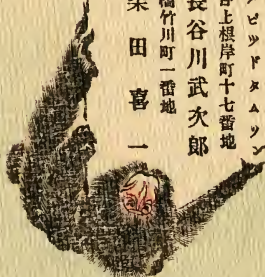 ビツドタムソン
上根岸町十七番地
長谷川武次郎
橋竹川町一番地
柴田喜一